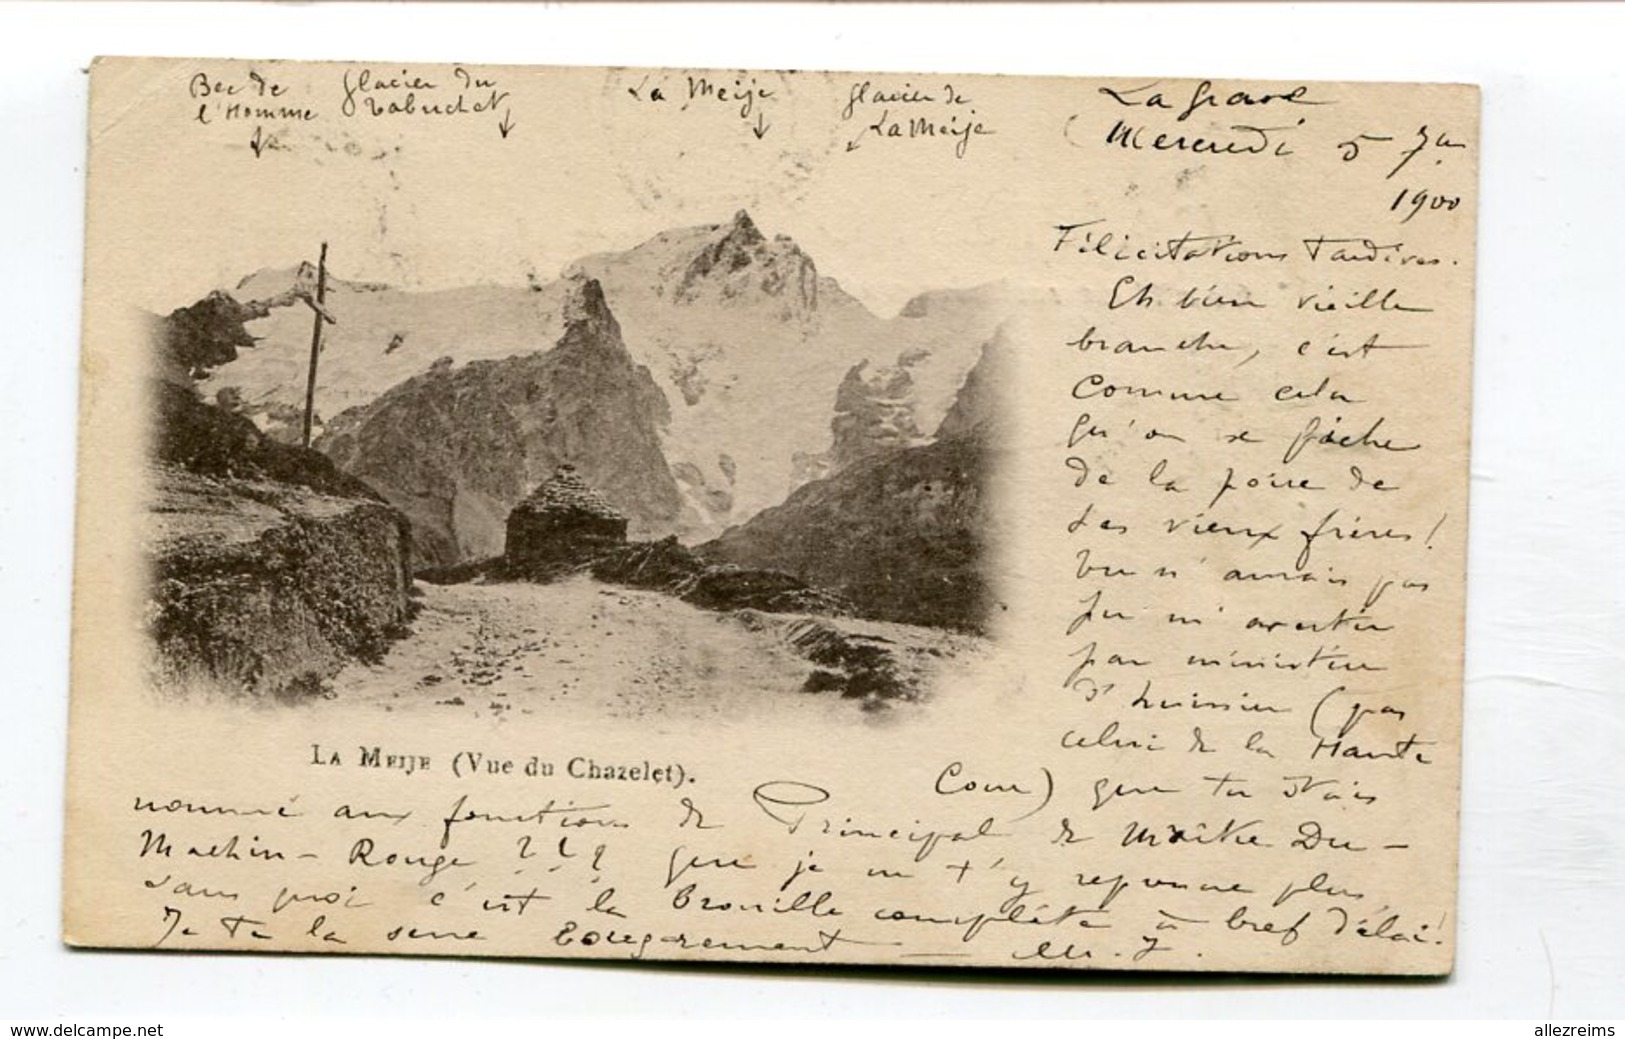 Bec de
l'Homme
Glacier du
Tabuchet
La Meije
Glacier de
La Meije
La Grave
Mercredi 5 7bre
1900
Félicitations tardives.
Eh bien vieille
branche, c'est
comme cela
qu'on se fiche
de la poire de
ses vieux frères!
Tu n'aurais pas
pu m'avertir
par ministère
d'huissier (pas
celui de la Haute
Cour) que tu étais
nommé aux fonctions de Principal de Maître Du-
Machin-Rouge ??? que je ne t'y reprenne plus,
sans quoi c'est la brouille complète à bref délai!
Je te la serre bougrement — M. J.
LA MEIJE (Vue du Chazelet).
www.delcampe.net
allezreims